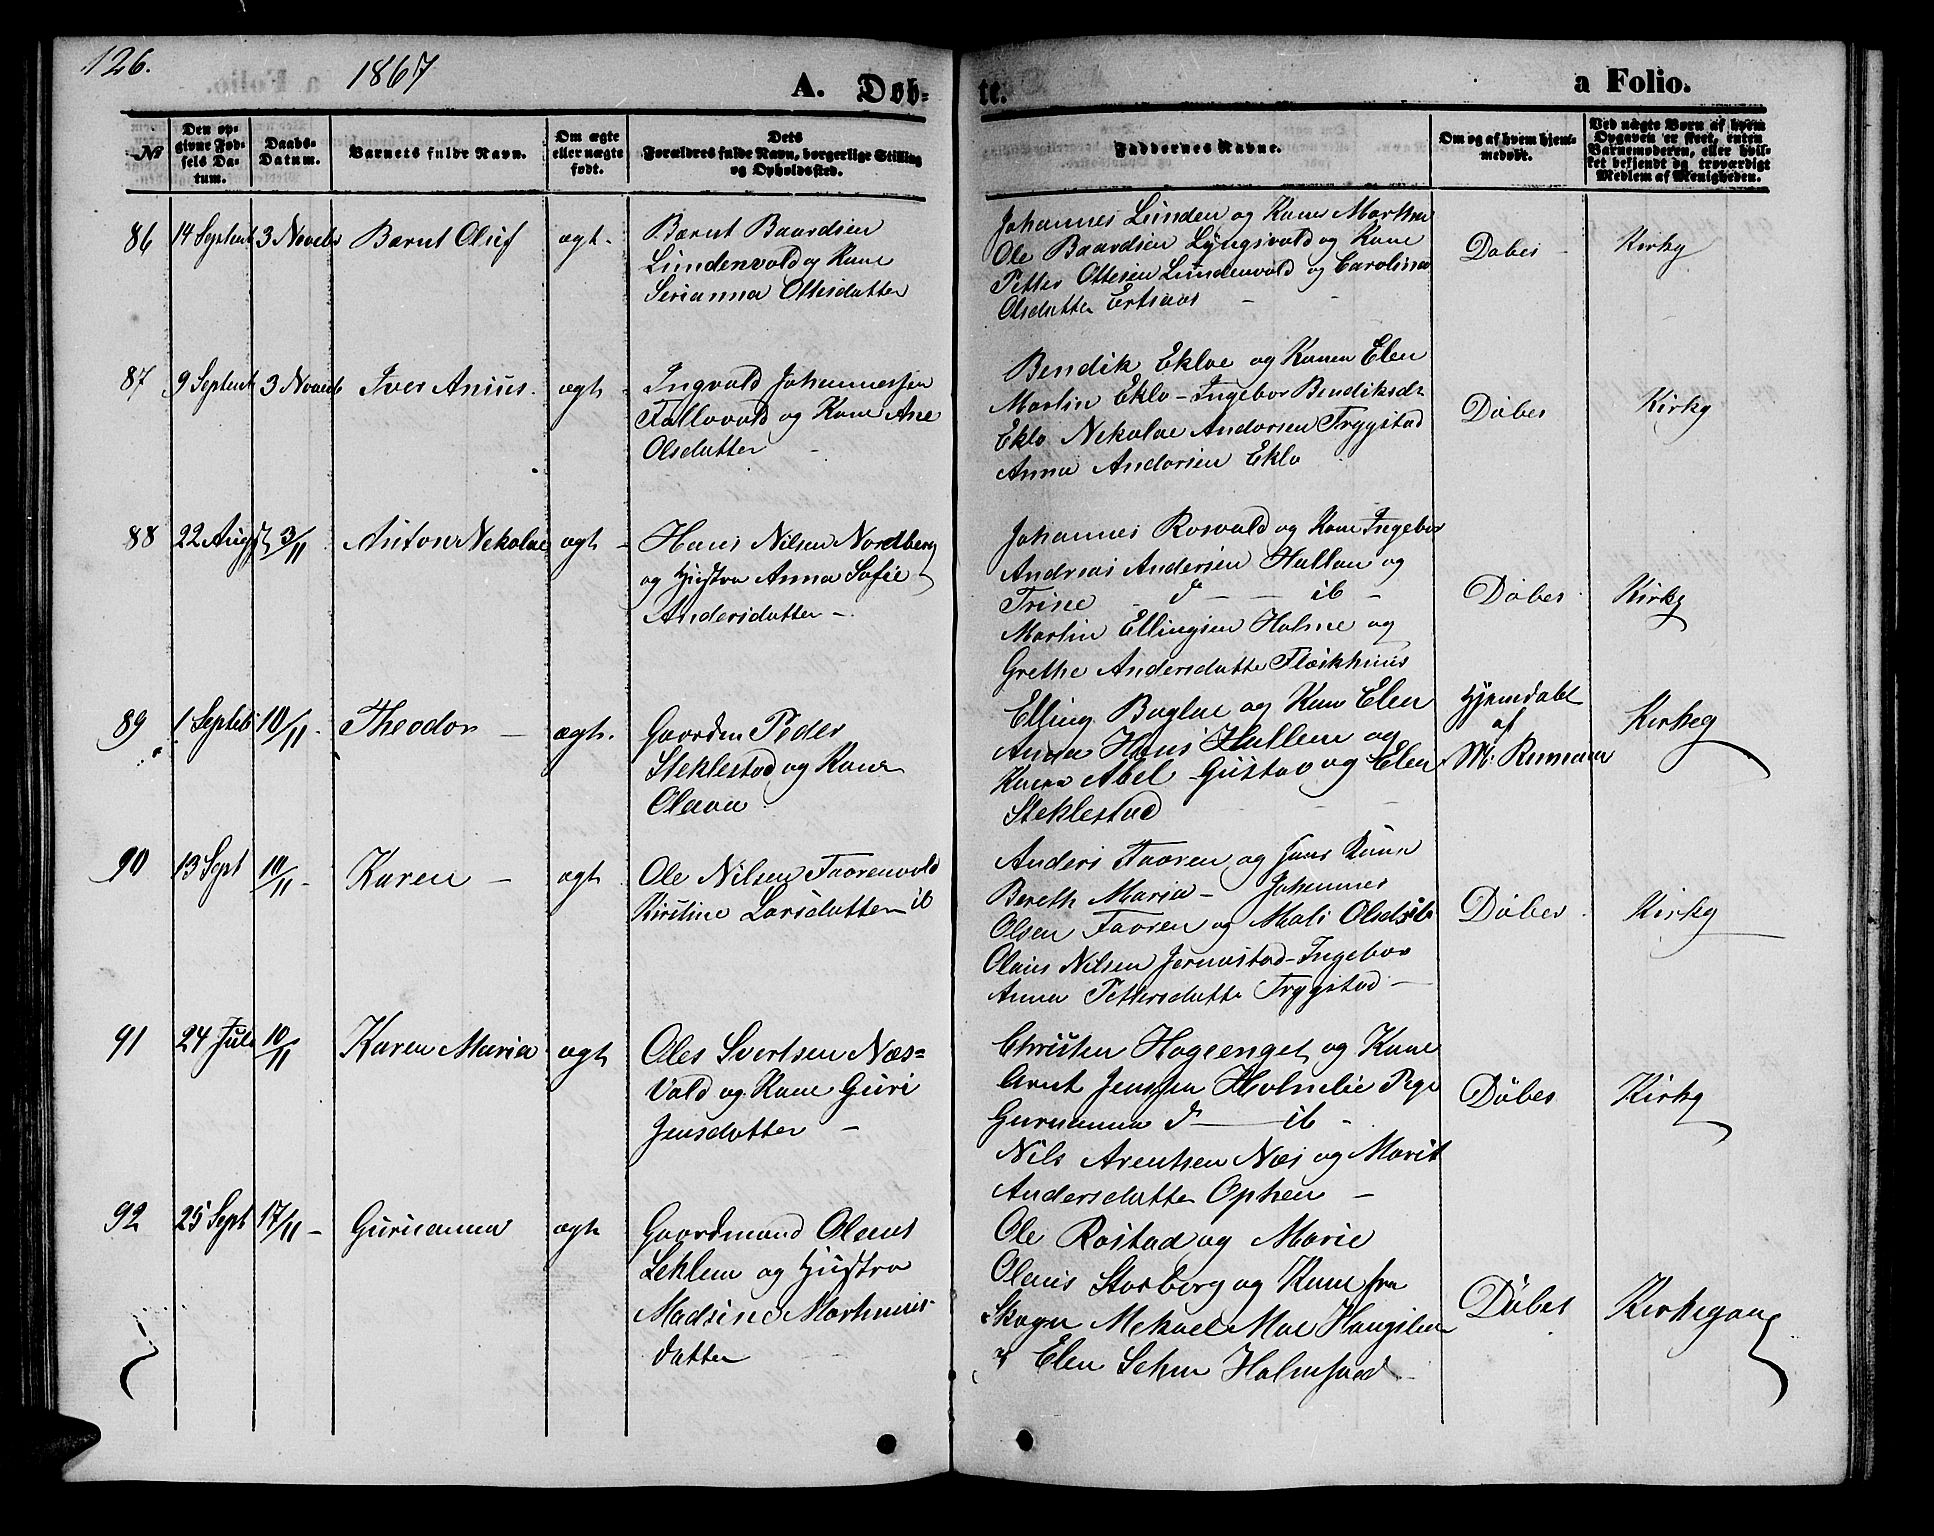 126.
1867
A. Døb-
te.
a Folio.
№
Den op-
givne Fød-
sels Da-
tum.
Daabs-
Datum.
Barnets fulde Navn.
Om ægte
eller uægte
født.
Dets
Forældres fulde Navn, borgerlige Stilling
og Opholdssted.
Faddernes Navne.
Om og af hvem hjem-
medøbt.
Ved uægte Børn af hvem
Opgaven er skeet, enten
Barnemoderen, eller hvil-
ket bekjendt og troværdigt
Medlem af Menigheden.
86 14 Septent 3 Novebr Bærnt Oluf ægt.
Bærnt Baardsen
Lundenvald og Kone
Serianna Ottesdatter
Johannes Lunden og Kone Marthea
Ole Baardsen Lyngsvald og Kone
Petter Ottesen Lundenvald og Carolina
Olsdatter Ertsaas
Døbes
Kirkg
87 9 Septent 3 Novemb Iver Anius. ægt
Ingvald Johannessen
Fallovald og Kone Ane
Olsdatter
Bendik Ekloe og Konen Elen
Martin Eklo - Ingebor Bendiksdr
Eklo Nekolae Andersen Trygstad
Anna Andersen Eklo
Døbes
Kirkg
88 22 Augst 3/11 Anton Nekolae ægt
Hans Nilsen Nordberg
og Hustro Anna Sofie
Andersdatter
Johannes Rosvald og Kone Ingebor
Andreas Andersen Hallan og
Trine d ib
Martin Ellingsen Holme og
Grethe Andersdatte Fleskhuus
Døbes
Kirkg
89 1 Septeb 10/11 Theodor ægt.
Gaardm Peder
Steklestad og Kone
Olava
Elling Baglae og Kone Elen
Anna Hans Hallem og
Kone Abel Gustav og Elen
Steklestad
Hjemdøbt
af
M: Rumaaer
Kirkeg
90 13 Sept 10/11 Karen ægt
Ole Nilsen Faarenvald
Kirstine Larsdatter ib
Anders Faaren og hans Kone
Bereth Maria - Johannes
Olsen Faaren og Mali Olsdtr ib
Olaus Nilsen Jermstad - Ingebor
Anna Pettersdatte Trygstad
Døbes
Kirkg
91 24 Juli 10/11 Karen Maria ægt
Oles Svertsen Næs-
Vald og Kone Guri
Jensdatter
Christen Hageenget og Kone
Arnt Jenssen Holmlie Pige
Gurianna d ib
Nils Arentsen Næs og Marit
Andersdatte Ophem
Døbes
Kirkg
92 25 Sept 17/11 Gurieanna ægt
Gaardmand Olaus
Leklem og Hustro
Madsine Marhuus-
datter
Ole Rostad og Marie
Olaus Storberg og Kone fra
Skogn Mekael Moe Haugslien
og Elen Sehm Holmsved
Døbes
Kirkegang